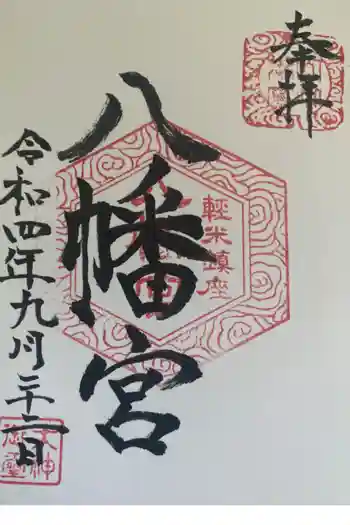 奉拝
八幡宮
輕米鎮座
令和四年九月二十二日